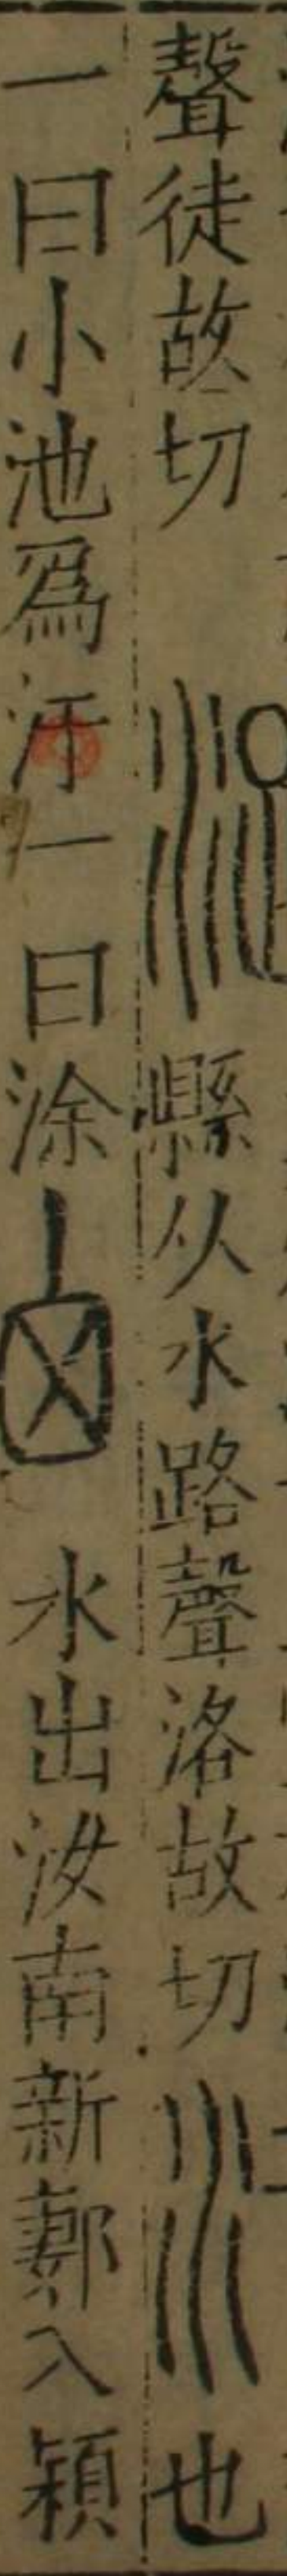 聲徒故切 縣从水路聲洛故切 也
一曰小池爲汙一曰涂 囟 水出汝南新郪入潁